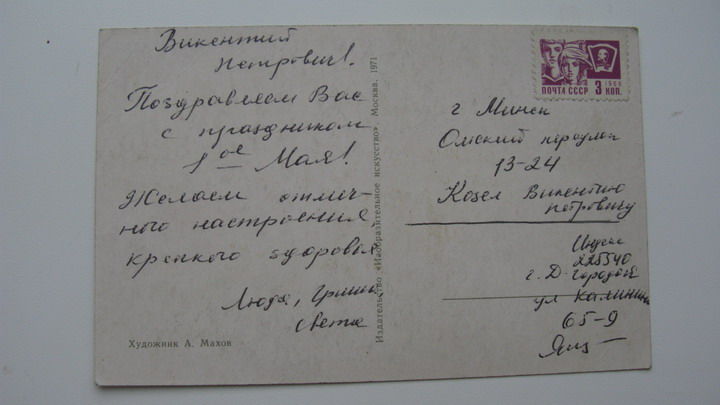 Викентий
Петрович!
Поздравляем Вас
с праздником
1ое Мая!
Желаем отлич-
ного настроения
крепкого здоровья
Люда, Гриша
Света
Художник А. Махов
Издательство «Изобразительное искусство». Москва. 1971
ПОЧТА СССР 3 КОП.
1966
г Минск
Омский переулок
13-24
Козел Викентию
Петровичу
Индекс
225540
г. Д-Городок
ул Калинина
65-9